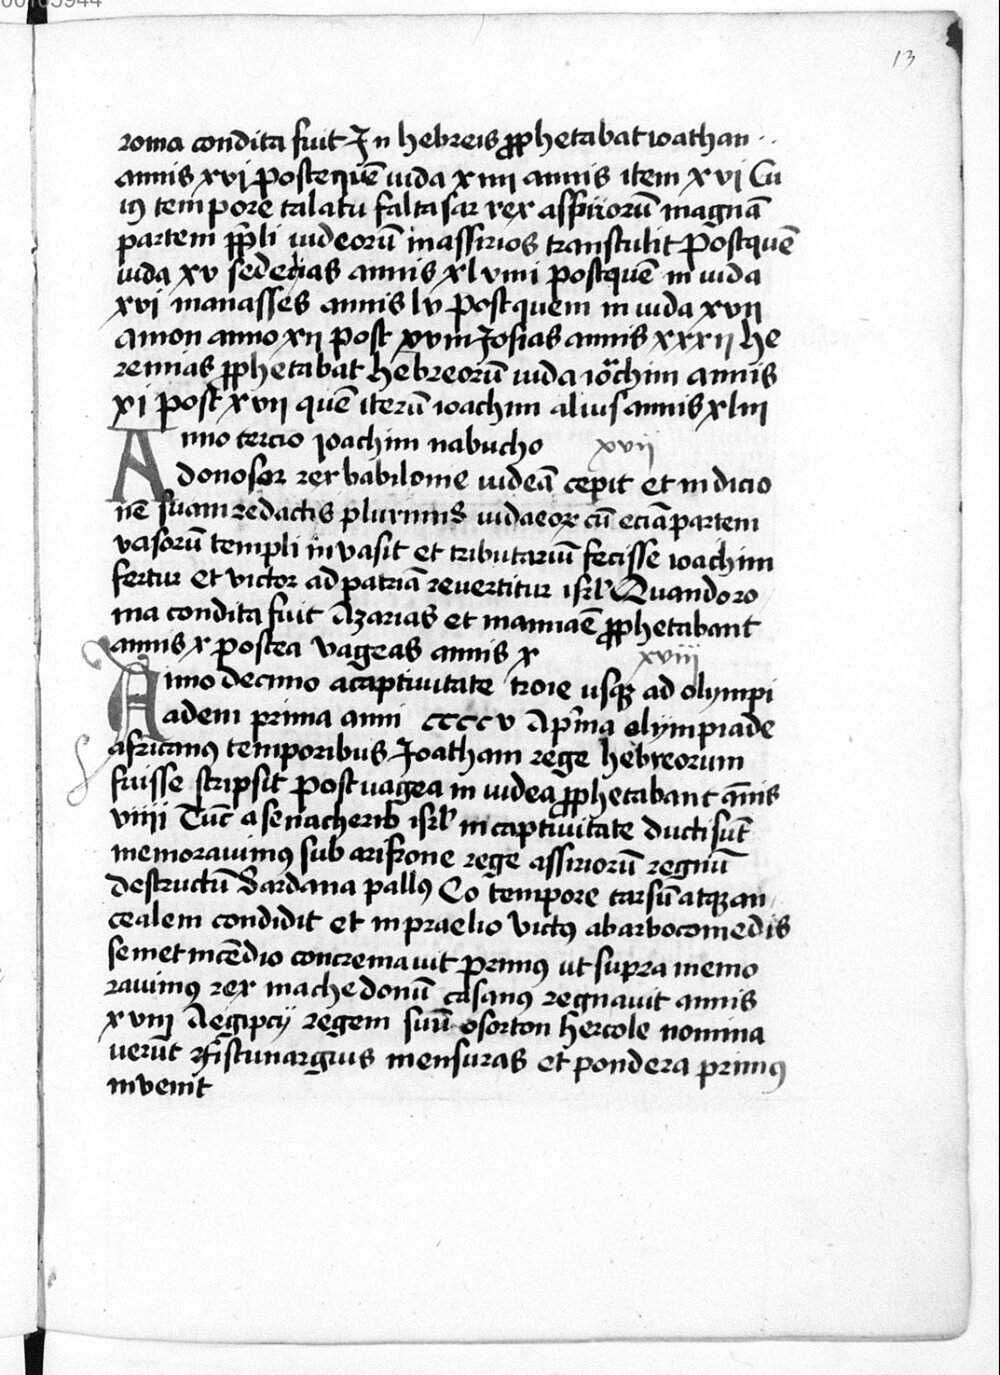 13
roma condita fuit In hebreis ꝓphetabat ioathan
annis xvi Postequē iuda xiiii annis item xvi Cu
iꝰ tempore talatu faltasar rex assirioꝛū magnā
partem ppli iudeoꝛū in assirios transtulit Postquē
iuda xv sedecias annis xlviiii postquē in iuda
xvi manasses annis lv postquem in iuda xvii
amon anno xii post xviii Josias annis xxxii he
remias ꝓphetabat hebreoꝛū iuda ioachim annis
xi post xvii quē iterū ioachim alius annis xliii
Anno tercio ioachim nabucho
xvii
donosor rex babilonie iudeā cepit et in dicio
nē suam redactis plurimis iudaeoꝝ cū eciā partem
vasoꝛū templi invasit et tributariū fecisse ioachim
fertur et victor ad patriā revertitur isrl Quando ro
ma condita fuit Azarias et mannaē ꝓphetabant
annis x postea vageas annis x
xviii
Anno decimo a captivitate troie usqꝫ ad olympi
adem prima anni ccccv A pͥma olympiade
africanꝰ temporibus Joatham rege hebreorum
fuisse scripsit post vagea in iudea ꝓphetabant ānis
viiii Tūc a senacherib isrl in captivitate ducti sūt
memoravimꝰ sub arifrone rege assirioꝛū regnū
destructū Sardana pallꝰ Eo tempore tarsū atqꝫ an
cealem condidit et in praelio victꝰ ab arboco medis
semet incēdio concremavit Primꝰ ut supra memo
ravimꝰ rex machedonū casanꝰ regnavit annis
xviii Aegipcij regem suū osorton hercole nomina
verūt Fistunargius mensuras et pondera primꝰ
invenit